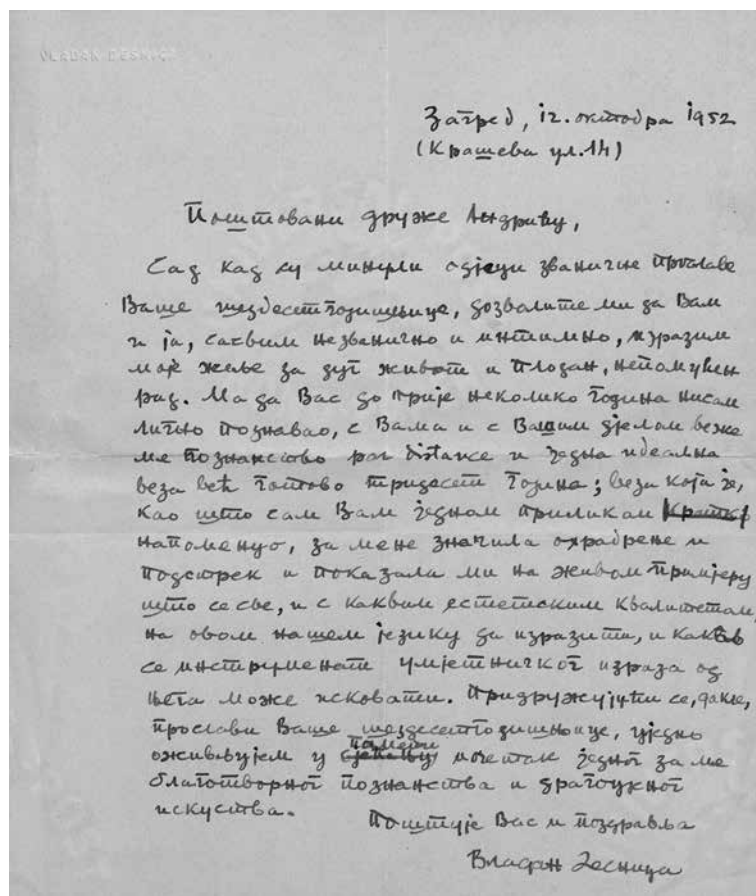 VLADAN DESNICA
Загреб, 12. октобра 1952
(Крашева ул. 14)
Поштовани друже Андрићу,
Сад кад су минули одјеци званичне прославе
Ваше шездесетгодишњице, дозволите ми да Вам
и ја, сасвим незванично и интимно, изразим
моје жеље за дуг живот и плодан, непомућен
рад. Ма да Вас до прије неколико година нисам
лично познавао, с Вама и с Вашим дјелом веже
ме познанство par distance и једна идеална
веза већ готово тридесет година; веза која је,
као што сам Вам једном приликом
напоменуо, за мене значила охрабрење и
подстрек и показала ми на живом примјеру
што се све, и с каквим естетским квалитетом,
на овом нашем језику да изразити, и какав
се инструменат умјетничког израза од
њега може исковати. Придружујући се, дакле,
прослави Ваше шездесетгодишњице, уједно
оживљујем у памети почетак једног за ме
благотворног познанства и драгоцјеног
искуства.
Поштује Вас и поздравља
Владан Десница